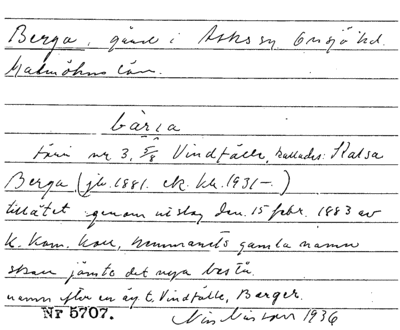 Berga, gård i Asks sn Onsjö hd.
Malmöhus län.
bärꞁa
från nr 3, 5/8 Vindfälle, kallades
Berga (jb. 1881. ek. kh. 1931-.)
tillåtet genom utslag den 15 febr. 1883 av
K. Kam. Koll., hemmanets gamla namn
skall jämte det nya bestå.
namn efter en äg. t. Vindfälle, Berger.
Nr 5707.
1936